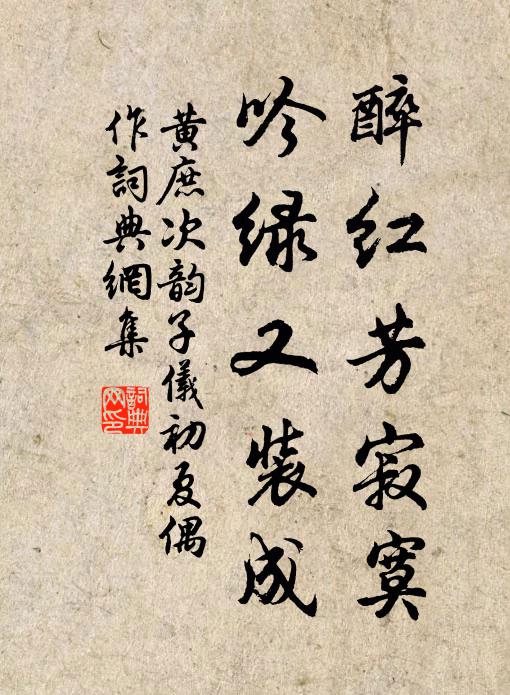 醉红芳寂寞
吟绿又装成
黄庶次韵子仪初夏偶
作词典网集
詞典
网印